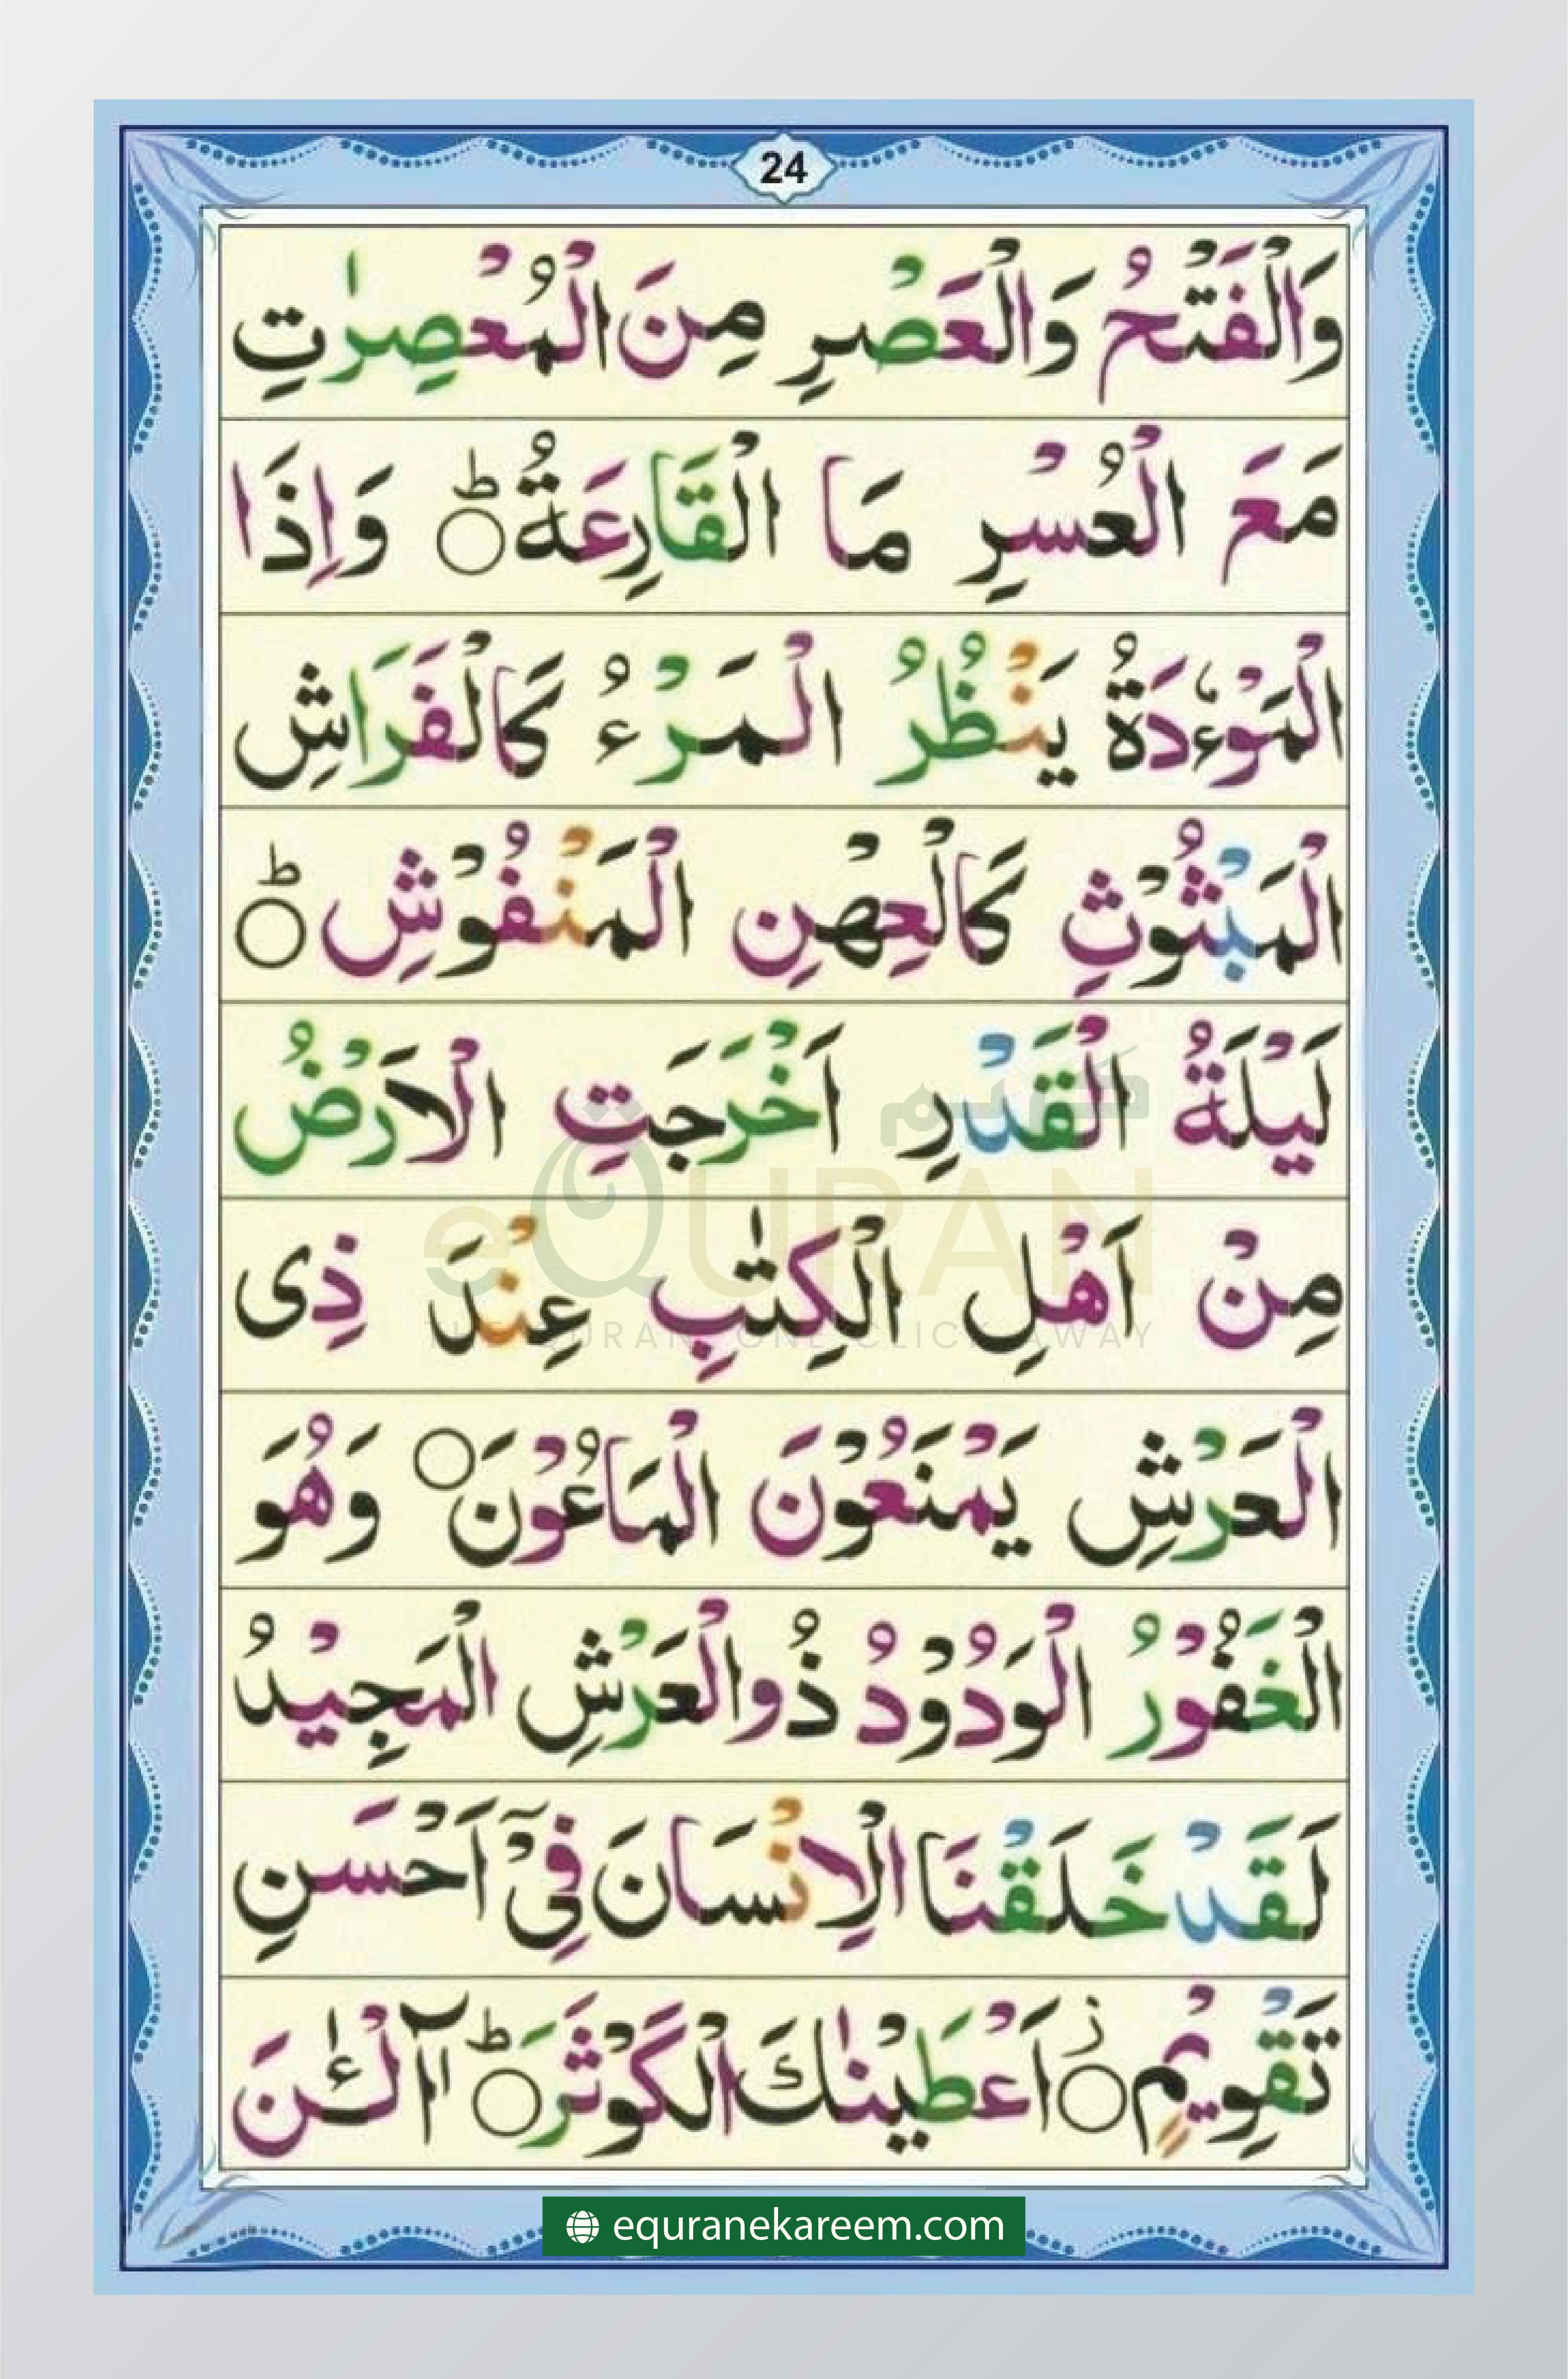 24
وَالْفَتْحُ وَالْعَصْرِ مِنَ الْمُعْصِرٰتِ
مَعَ الْعُسْرِ مَا الْقَارِعَةُ ؕ○ وَاِذَا
الْمَوْءٗدَةُ يَنْظُرُ الْمَرْءُ كَالْفَرَاشِ
الْمَبْثُوْثِ كَالْعِهْنِ الْمَنْفُوْشِ ؕ○
لَيْلَةُ الْقَدْرِ اَخْرَجَتِ الْاَرْضُ
مِنْ اَهْلِ الْكِتٰبِ عِنْدَ ذِى
الْعَرْشِ يَمْنَعُوْنَ الْمَاعُوْنَ○ وَهُوَ
الْغَفُوْرُ الْوَدُوْدُ ذُوالْعَرْشِ الْمَجِيْدُ
لَقَدْ خَلَقْنَا الْاِنْسَانَ فِىْٓ اَحْسَنِ
تَقْوِيْمٍ ۫○ اَعْطَيْنٰكَ الْكَوْثَرَ ؕ○ آلْـٰٔنَ
كريم
eQURAN
THE QURAN, ONE CLICK AWAY
equranekareem.com